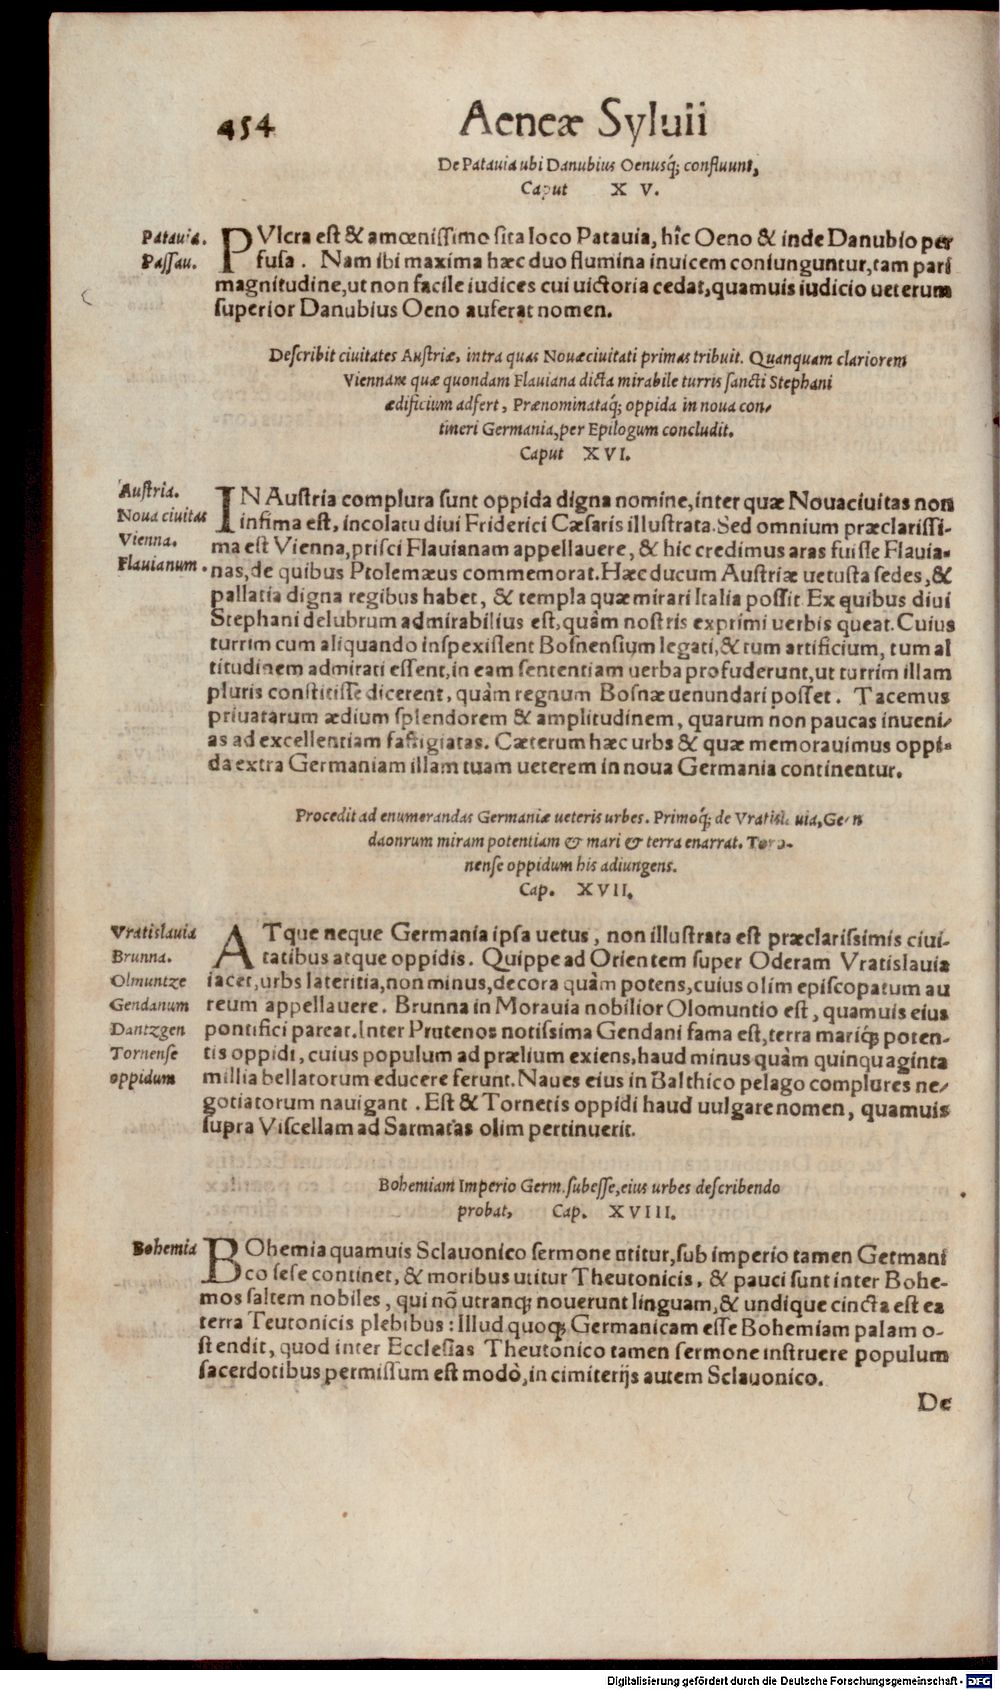 454 Aeneæ Syluii
De Patauia ubi Danubius Oenusq́; confluunt,
Caput X V.
Patauia.
Passau.
PVlcra est & amœnissimo sita loco Patauia, hîc Oeno & inde Danubio per
fusa . Nam ibi maxima hæc duo flumina inuicem coniunguntur, tam pari
magnitudine, ut non facile iudices cui uictoria cedat, quamuis iudicio ueterum
superior Danubius Oeno auferat nomen.
Describit ciuitates Austriæ, intra quas Nouæciuitati primas tribuit. Quanquam clariorem
Viennam quæ quondam Flauiana dicta mirabile turris sancti Stephani
ædificium adfert, Prænominataq́; oppida in noua con-
tineri Germania, per Epilogum concludit.
Caput XVI.
Austria.
Noua ciuitas
Vienna.
Flauianum.
IN Austria complura sunt oppida digna nomine, inter quæ Nouaciuitas non
infima est, incolatu diui Friderici Cæsaris illustrata. Sed omnium præclarissi-
ma est Vienna, prisci Flauianam appellauere, & hic credimus aras fuisse Flauia-
nas, de quibus Ptolemæus commemorat. Hæc ducum Austriæ uetusta sedes, &
pallatia digna regibus habet, & templa quæ mirari Italia possit. Ex quibus diui
Stephani delubrum admirabilius est, quâm nostris exprimi uerbis queat. Cuius
turrim cum aliquando inspexissent Bosnensium legati, & tum artificium, tum al
titudinem admirati essent, in eam sententiam uerba profuderunt, ut turrim illam
pluris constitisse dicerent, quàm regnum Bosnæ uenundari posset. Tacemus
priuatarum ædium splendorem & amplitudinem, quarum non paucas inueni-
as ad excellentiam fastigiatas. Cæterum hæc urbs & quæ memorauimus oppi-
da extra Germaniam illam tuam ueterem in noua Germania continentur.
Procedit ad enumerandas Germaniæ ueteris urbes. Primoq́; de Vratisl uia, Gen
daonrum miram potentiam & mari & terra enarrat. Toro-
nense oppidum his adiungens.
Cap. XVII.
Vratislauia
Brunna.
Olmuntze
Gendanum
Dantzgen
Tornense
oppidum
ATque neque Germania ipsa uetus, non illustrata est præclarissimis ciui-
tatibus atque oppidis. Quippe ad Orientem super Oderam Vratislauia
iacet, urbs lateritia, non minus, decora quàm potens, cuius olim episcopatum au
reum appellauere. Brunna in Morauia nobilior Olomuntio est, quamuis eius
pontifici pareat. Inter Prutenos notissima Gendani fama est, terra mariq́; poten-
tis oppidi, cuius populum ad prælium exiens, haud minus quàm quinquaginta
millia bellatorum educere ferunt. Naues eius in Balthico pelago complures ne-
gotiatorum nauigant . Est & Tornetis oppidi haud uulgare nomen, quamuis
supra Viscellam ad Sarmatas olim pertinuerit.
Bohemiam Imperio Germ. subesse, eius urbes describendo
probat, Cap. XVIII.
Bohemia
BOhemia quamuis Sclauonico sermone utitur, sub imperio tamen Germani
co sese continet, & moribus utitur Theutonicis, & pauci sunt inter Bohe-
mos saltem nobiles, qui nō utranq; nouerunt linguam, & undique cincta est ea
terra Teutonicis plebibus: Illud quoq; Germanicam esse Bohemiam palam o-
stendit, quod inter Ecclesias Theutonico tamen sermone instruere populum
sacerdotibus permissum est modò, in cimiterijs autem Sclauonico.
De
Digitalisierung gefördert durch die Deutsche Forschungsgemeinschaft - DFG